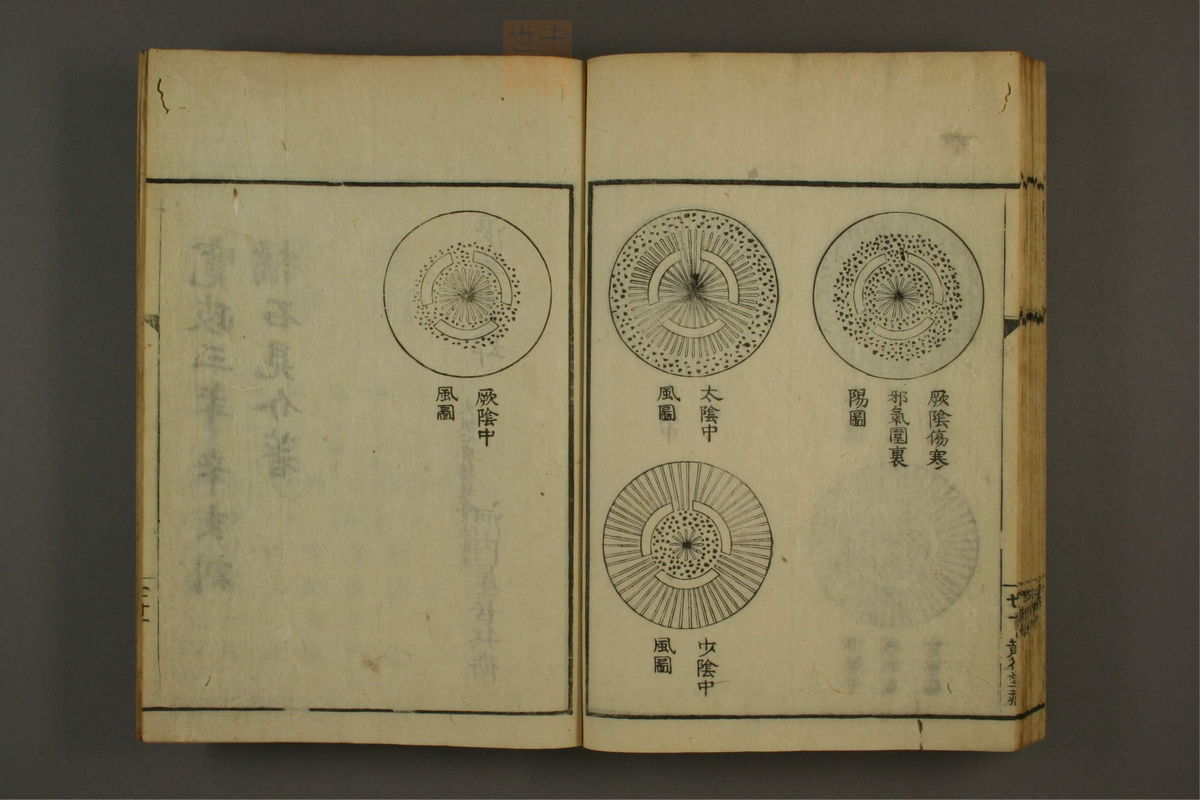 厥陰傷寒
邪氣圍裏
陽圖
太陰中
風圖
少陰中
風圖
厥陰中
風圖